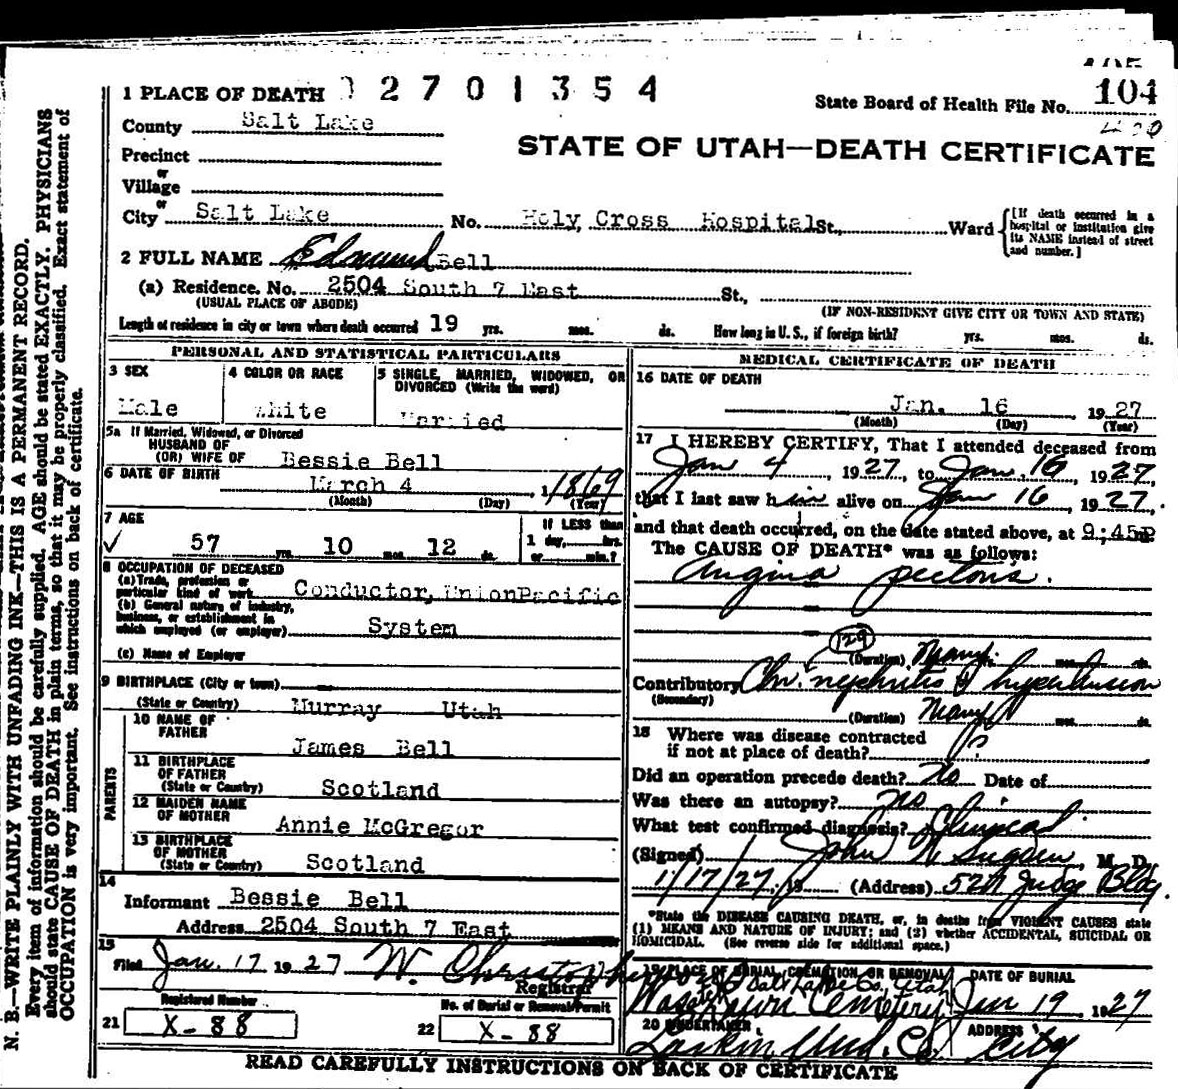 104
1 PLACE OF DEATH 2701354
State Board of Health File No. 104
County Salt Lake
STATE OF UTAH—DEATH CERTIFICATE
Precinct
or
Village
or
City Salt Lake No. Holy Cross Hospital St., Ward
[If death occurred in a
hospital or institution give
its NAME instead of street
and number.]
2 FULL NAME Edmund Bell
(a) Residence. No. 2504 South 7 East St.,
(USUAL PLACE OF ABODE)
(IF NON-RESIDENT GIVE CITY OR TOWN AND STATE)
Length of residence in city or town where death occurred 19 yrs. mos. ds. How long in U. S., if foreign birth? yrs. mos. ds.
PERSONAL AND STATISTICAL PARTICULARS
3 SEX
Male
4 COLOR OR RACE
White
5 SINGLE, MARRIED, WIDOWED, OR
DIVORCED (Write the word)
Married
5a If Married, Widowed, or Divorced
HUSBAND OF
(OR) WIFE OF Bessie Bell
6 DATE OF BIRTH March 4, 1869
(Month) (Day) (Year)
7 AGE
57 yrs. 10 mos. 12 ds.
If LESS than
1 day, hrs.
or min.?
8 OCCUPATION OF DECEASED
(a) Trade, profession or
particular kind of work Conductor, Union Pacific
(b) General nature of industry,
business, or establishment in
which employed (or employer) System
(c) Name of Employer
9 BIRTHPLACE (City or town)
(State or Country) Murray Utah
PARENTS
10 NAME OF
FATHER
James Bell
11 BIRTHPLACE
OF FATHER
(State or Country) Scotland
12 MAIDEN NAME
OF MOTHER
Annie McGregor
13 BIRTHPLACE
OF MOTHER
(State or Country) Scotland
14
Informant Bessie Bell
Address 2504 South 7 East
15
Filed Jan. 17 1927
Registrar
Registered Number
21 X-88
No. of Burial or Removal Permit
22 X-88
MEDICAL CERTIFICATE OF DEATH
16 DATE OF DEATH
Jan. 16, 1927
(Month) (Day) (Year)
17 I HEREBY CERTIFY, That I attended deceased from
Jan 4 1927, to Jan. 16 1927,
that I last saw h im alive on Jan 16, 1927,
and that death occurred, on the date stated above, at 9:45P
The CAUSE OF DEATH* was as follows:
Angina pectoris.
129
(Duration) Many mos. ds.
Contributory Chr. nephritis & hypertension
(Secondary)
(Duration) Many mos. ds.
18 Where was disease contracted
if not at place of death? ?
Did an operation precede death? No Date of
Was there an autopsy? no
What test confirmed diagnosis? Clinical
(Signed) John N Sugden, M. D.
1/17/27, 19 (Address) 527 Judge Bldg.
*State the DISEASE CAUSING DEATH, or, in deaths from VIOLENT CAUSES state
(1) MEANS AND NATURE OF INJURY; and (2) whether ACCIDENTAL, SUICIDAL OR
HOMICIDAL. (See reverse side for additional space.)
19 PLACE OF BURIAL, CREMATION OR REMOVAL
Salt Lake Co., Utah
Wasatch Lawn Cemetery
DATE OF BURIAL
Jan 19, 1927
20 UNDERTAKER
Larkin Und. Co.
ADDRESS
City
READ CAREFULLY INSTRUCTIONS ON BACK OF CERTIFICATE
N. B.—WRITE PLAINLY WITH UNFADING INK—THIS IS A PERMANENT RECORD.
Every item of information should be carefully supplied. AGE should be stated EXACTLY. PHYSICIANS
should state CAUSE OF DEATH in plain terms, so that it may be properly classified. Exact statement of
OCCUPATION is very important. See instructions on back of certificate.